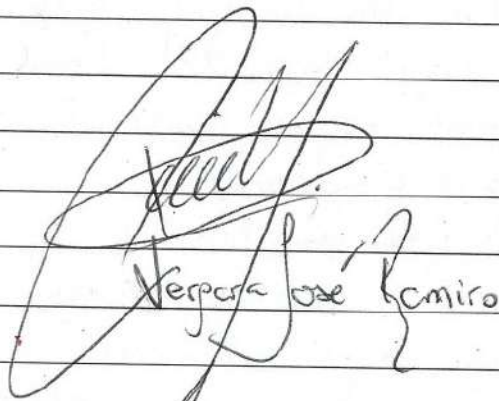 Vergara José Ramiro